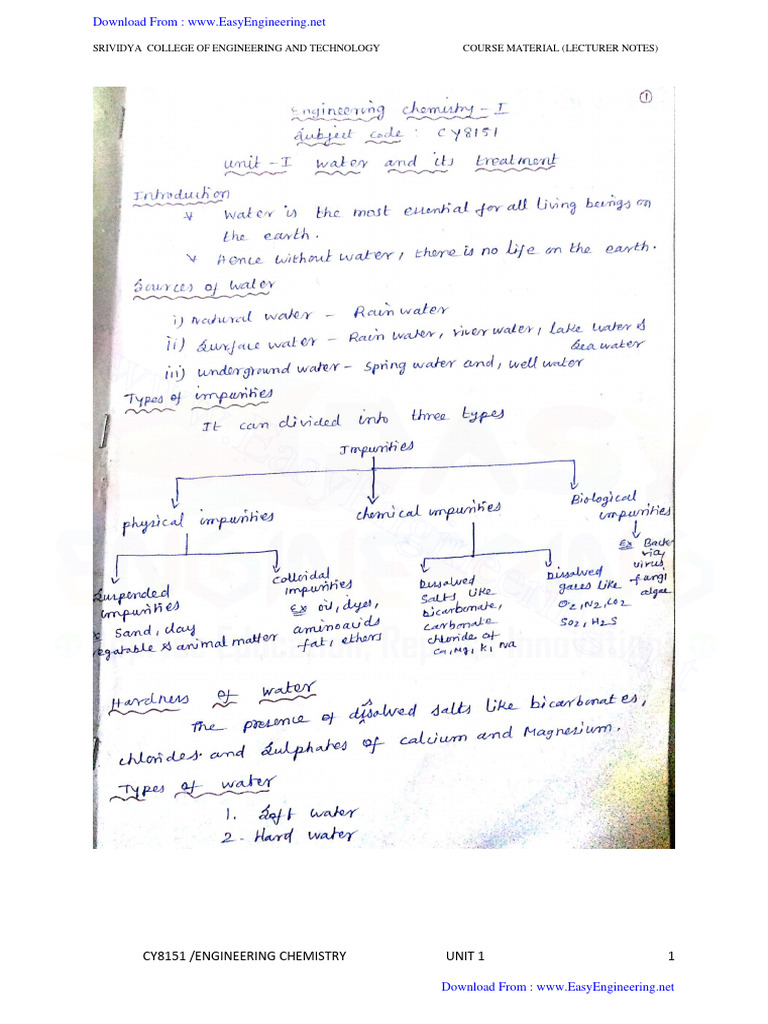 Download From : www.EasyEngineering.net
SRIVIDYA COLLEGE OF ENGINEERING AND TECHNOLOGY COURSE MATERIAL (LECTURER NOTES)
1
Engineering chemistry - I
Subject code : CY8151
unit - I water and its treatment
Introduction
water is the most essential for all living beings on
the earth.
Hence without water, there is no life on the earth.
Sources of water
i) Natural water - Rain water
ii) Surface water - Rain water, river water, lake water &
Sea water
iii) underground water - spring water and, well water
Types of impurities
It can divided into three types
Impurities
physical impurities
chemical impurities
Biological
impurities
Ex Bacte
ria,
virus
fungi
algae
Suspended
impurities
Sand, clay
egatable & animal matter
Colloidal
impurities
Ex oil, dyes,
aminoacids
fat, ethers
Dissolved
salts like
bicarbonate,
carbonate
chloride of
Ca, Mg, K, Na
Dissolved
gases like
O2, N2, CO2
SO2, H2S
Hardness of water
The presence of dissolved salts like bicarbonates,
chlorides and sulphates of calcium and Magnesium.
Types of water
1. Soft water
2. Hard water
CY8151 /ENGINEERING CHEMISTRY UNIT 1 1
Download From : www.EasyEngineering.net